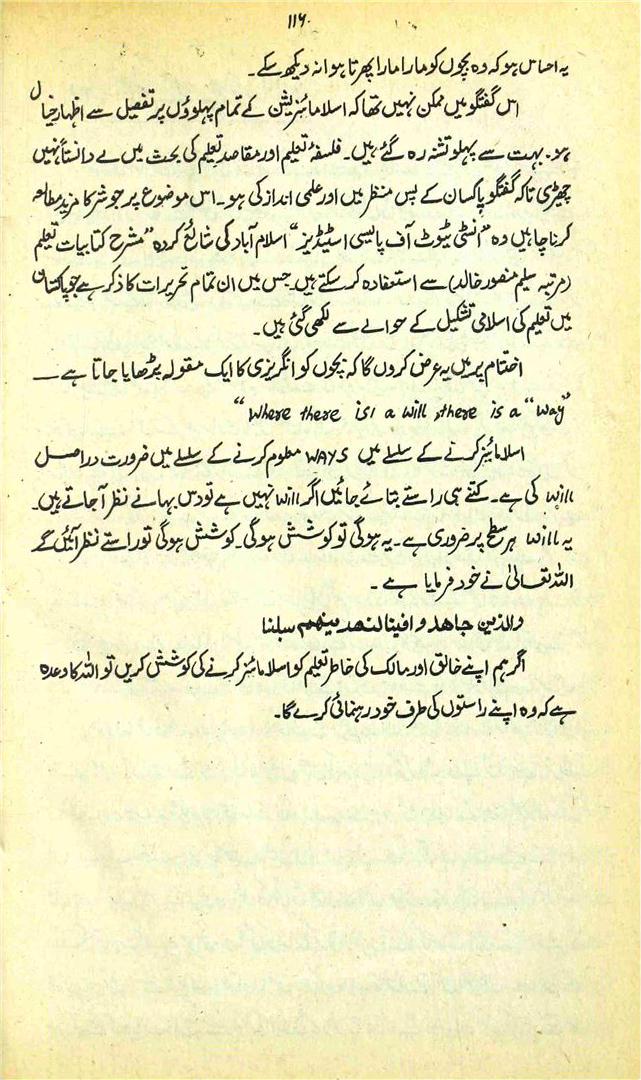 ۱۱۶
یہ احساس ہو کہ وہ بچوں کو مارا مارا پھرتا ہوا نہ دیکھ سکے۔
اس گفتگو میں ممکن نہیں تھا کہ اسلامائزیشن کے تمام پہلوؤں پر تفصیل سے اظہار خیال
ہو۔ بہت سے پہلو تشنہ رہ گئے ہیں۔ فلسفۂ تعلیم اور مقاصد تعلیم کی بحث میں نے دانستاً نہیں
چھیڑی تاکہ گفتگو پاکستان کے پس منظر میں اور علمی انداز کی ہو۔ اس موضوع پر جو شرکا مزید مطالعہ
کرنا چاہیں وہ "انسٹی ٹیوٹ آف پالیسی اسٹیڈیز" اسلام آباد کی شائع کردہ "مشرح کتابیات تعلیم
(مرتبہ سلیم منصور خالد) سے استفادہ کر سکتے ہیں۔ جس میں ان تمام تحریرات کا ذکر ہے جو پاکستان
میں تعلیم کی اسلامی تشکیل کے حوالے سے لکھی گئی ہیں۔
اختتام پر میں یہ عرض کروں گا کہ بچوں کو انگریزی کا ایک مقولہ پڑھایا جاتا ہے —
"Where there isı a will ,there is a "way"
اسلامائز کرنے کے سلسلے میں WAYS معلوم کرنے کے سلسلے میں ضرورت دراصل
will کی ہے۔ کتنے ہی راستے بتائے جائیں اگر will نہیں ہے تو دس بہانے نظر آ جاتے ہیں۔
یہ will ہر سطح پر ضروری ہے۔ یہ ہوگی تو کوشش ہوگی۔ کوشش ہوگی تو راستے نظر آئیں گے
اللہ تعالیٰ نے خود فرمایا ہے۔
والذین جاھدوا فینا لنھدینھم سبلنا
اگر ہم اپنے خالق اور مالک کی خاطر تعلیم کو اسلامائز کرنے کی کوشش کریں تو اللہ کا وعدہ
ہے کہ وہ اپنے راستوں کی طرف خود رہنمائی کرے گا۔